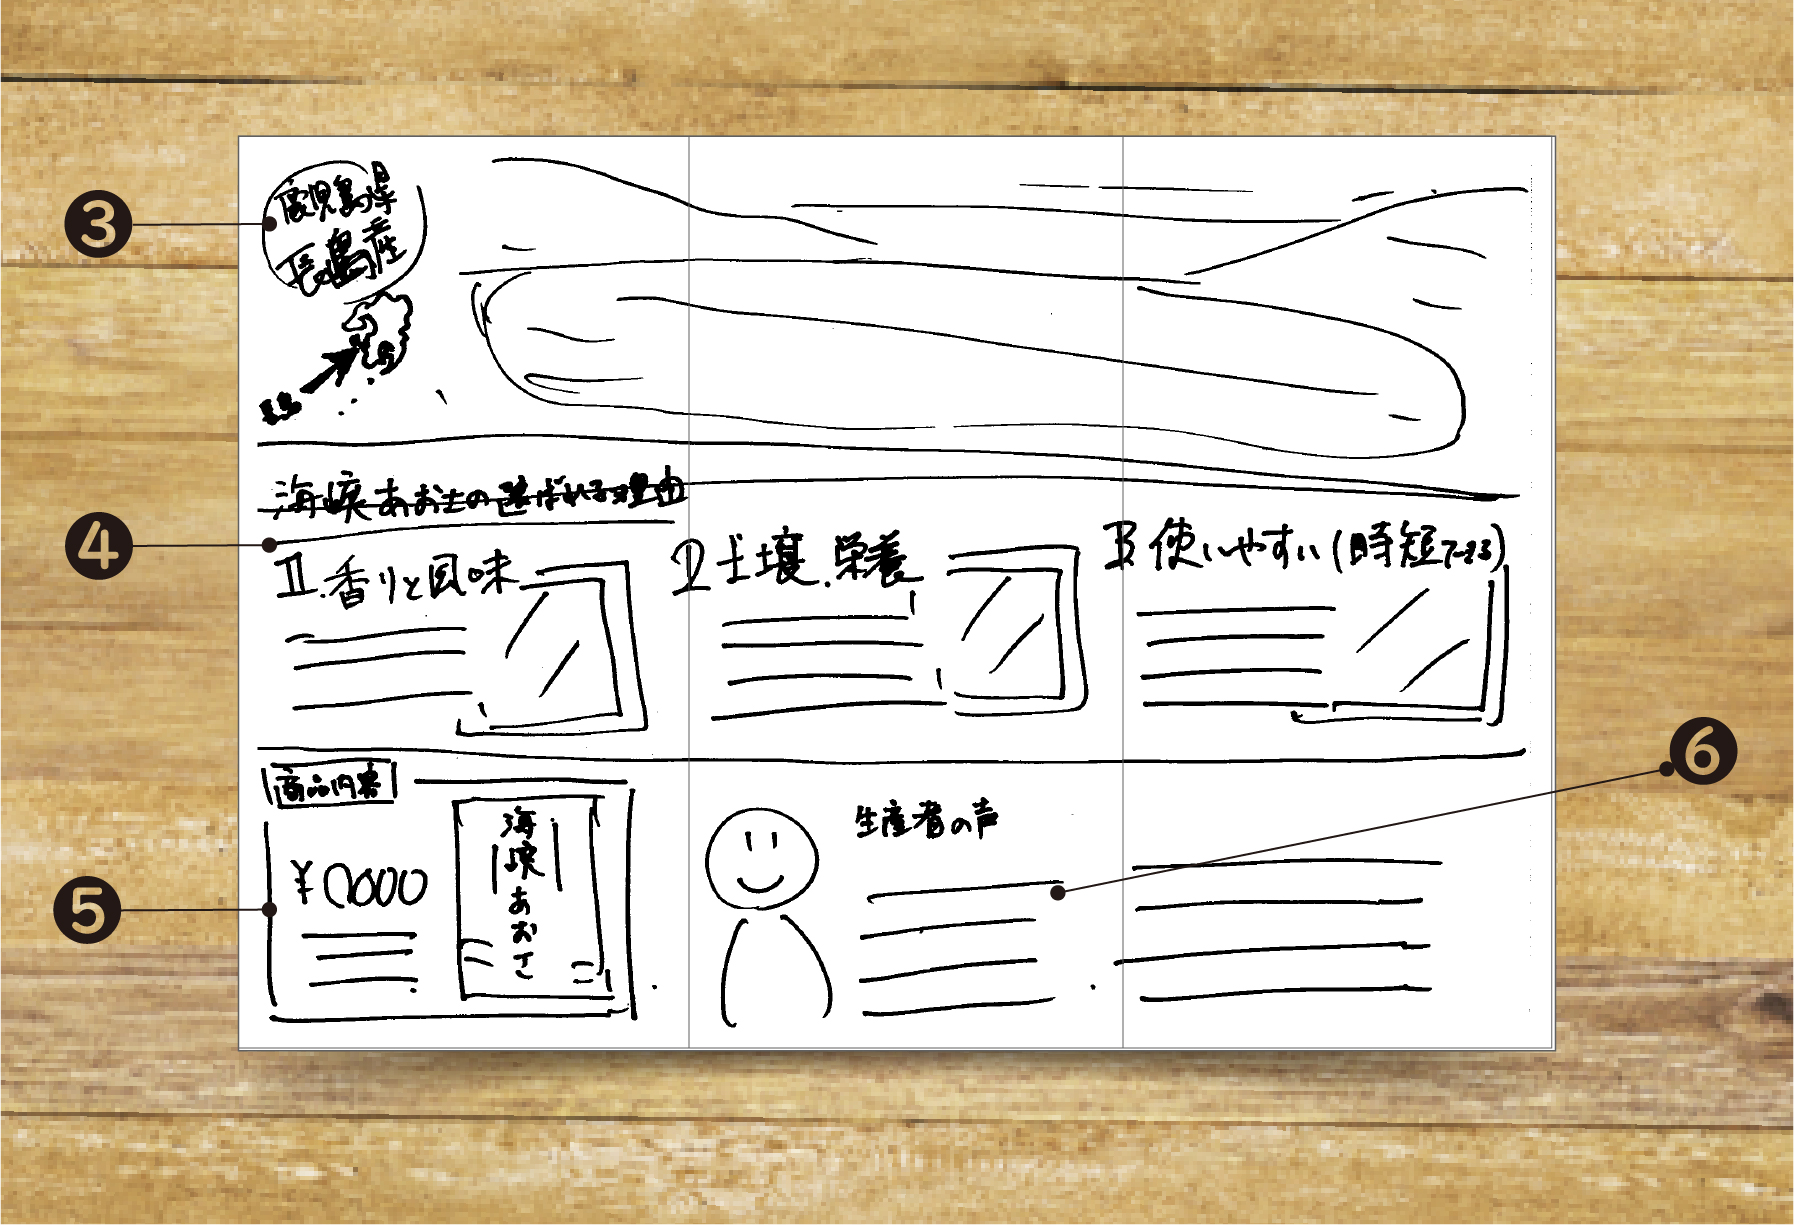 3
鹿児島県
長島産
長島
4
海峡あおさの選ばれる理由
1.香りと風味
2 土壌.栄養
3 使いやすい(時短
5
商品内容
¥0000
海峡あおさ
生産者の声
6